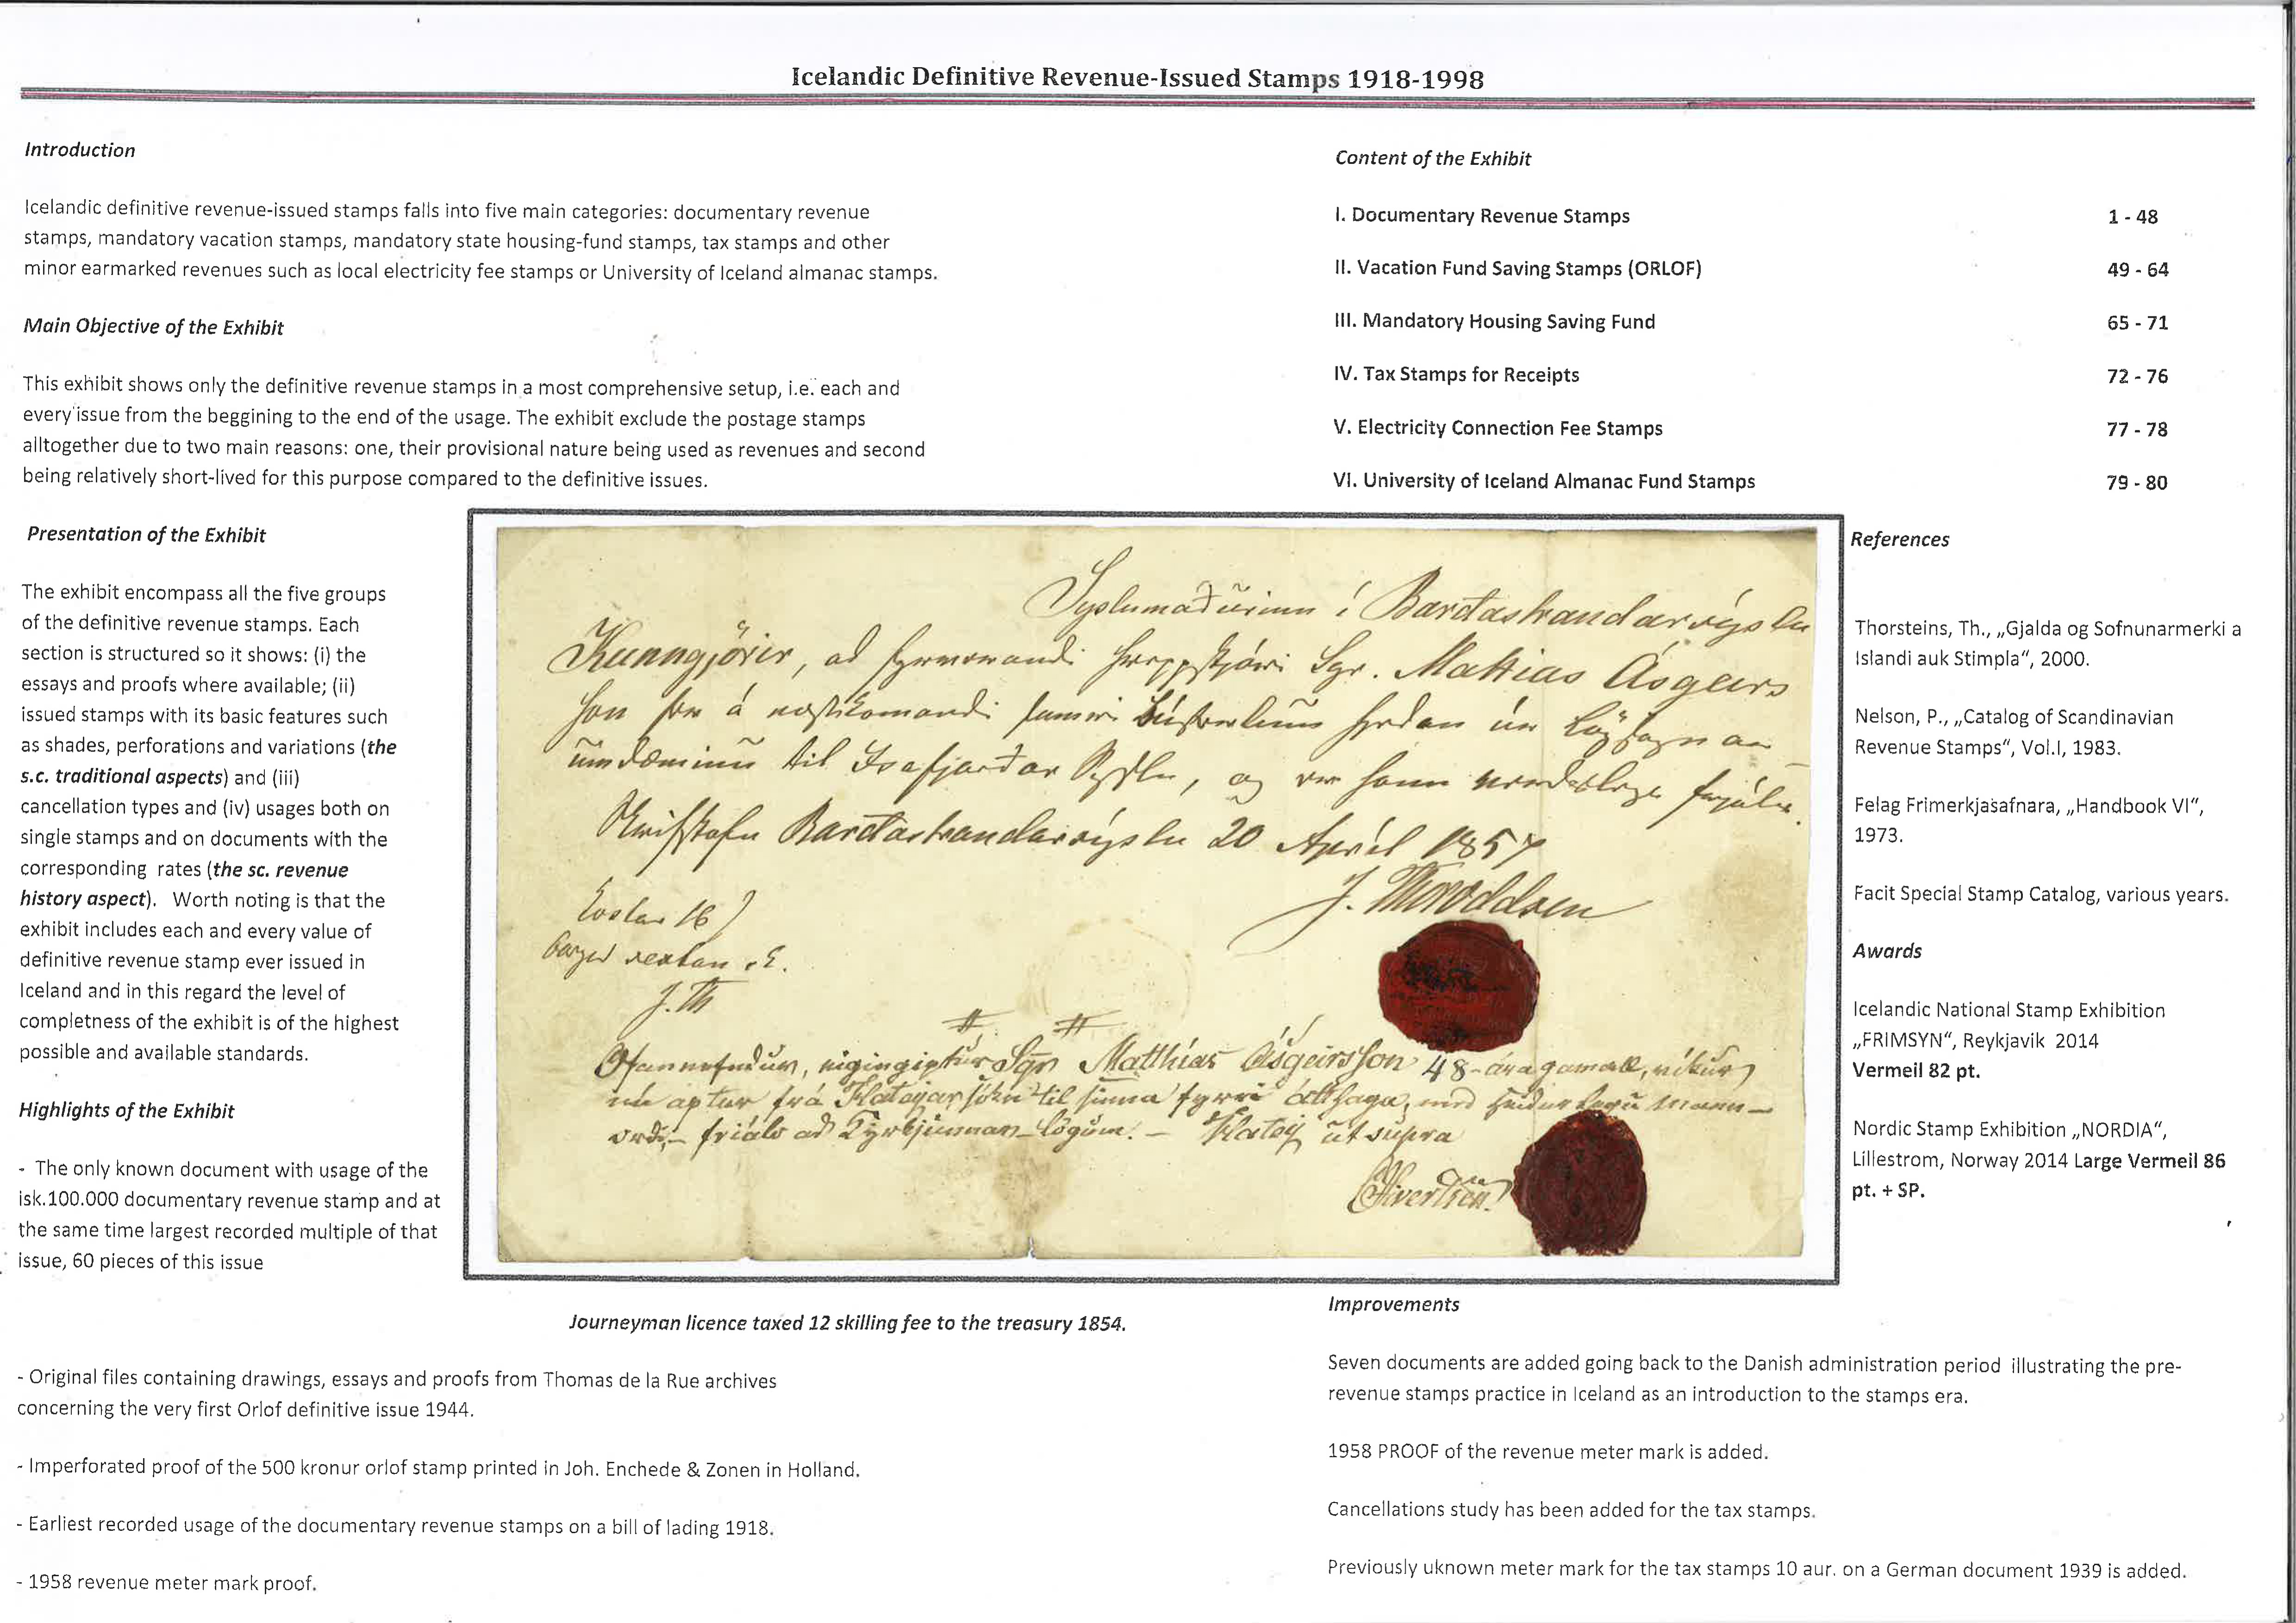 Icelandic Definitive Revenue-Issued Stamps 1918-1998
Introduction
Icelandic definitive revenue-issued stamps falls into five main categories: documentary revenue
stamps, mandatory vacation stamps, mandatory state housing-fund stamps, tax stamps and other
minor earmarked revenues such as local electricity fee stamps or University of Iceland almanac stamps.
Main Objective of the Exhibit
This exhibit shows only the definitive revenue stamps in a most comprehensive setup, i.e. each and
every issue from the beggining to the end of the usage. The exhibit exclude the postage stamps
alltogether due to two main reasons: one, their provisional nature being used as revenues and second
being relatively short-lived for this purpose compared to the definitive issues.
Content of the Exhibit
I. Documentary Revenue Stamps 1 - 48
II. Vacation Fund Saving Stamps (ORLOF) 49 - 64
III. Mandatory Housing Saving Fund 65 - 71
IV. Tax Stamps for Receipts 72 - 76
V. Electricity Connection Fee Stamps 77 - 78
VI. University of Iceland Almanac Fund Stamps 79 - 80
Presentation of the Exhibit
The exhibit encompass all the five groups
of the definitive revenue stamps. Each
section is structured so it shows: (i) the
essays and proofs where available; (ii)
issued stamps with its basic features such
as shades, perforations and variations (the
s.c. traditional aspects) and (iii)
cancellation types and (iv) usages both on
single stamps and on documents with the
corresponding rates (the sc. revenue
history aspect). Worth noting is that the
exhibit includes each and every value of
definitive revenue stamp ever issued in
Iceland and in this regard the level of
completness of the exhibit is of the highest
possible and available standards.
Highlights of the Exhibit
- The only known document with usage of the
isk.100.000 documentary revenue stamp and at
the same time largest recorded multiple of that
issue, 60 pieces of this issue
Syslumaðurinn í Bardastrandarsýslu
Kunngjörir, ad Sgr. Mathias Ásgeirs
son á
til Isafjardar Syslu, og
Bardastrandarsýslu 20 Apríl 1857
J. Thoroddsen
16
J. Th
Sgr Matthías Ásgeirsson 48-ára gamall, víkur
aptur frá Flateyar sókn til sinna fyrri átthaga, med
ut supra
References
Thorsteins, Th., „Gjalda og Sofnunarmerki a
Islandi auk Stimpla“, 2000.
Nelson, P., „Catalog of Scandinavian
Revenue Stamps“, Vol.I, 1983.
Felag Frimerkjasafnara, „Handbook VI“,
1973.
Facit Special Stamp Catalog, various years.
Awards
Icelandic National Stamp Exhibition
„FRIMSYN“, Reykjavik 2014
Vermeil 82 pt.
Nordic Stamp Exhibition „NORDIA“,
Lillestrom, Norway 2014 Large Vermeil 86
pt. + SP.
Journeyman licence taxed 12 skilling fee to the treasury 1854.
- Original files containing drawings, essays and proofs from Thomas de la Rue archives
concerning the very first Orlof definitive issue 1944.
- Imperforated proof of the 500 kronur orlof stamp printed in Joh. Enchede & Zonen in Holland.
- Earliest recorded usage of the documentary revenue stamps on a bill of lading 1918.
- 1958 revenue meter mark proof.
Improvements
Seven documents are added going back to the Danish administration period illustrating the pre-
revenue stamps practice in Iceland as an introduction to the stamps era.
1958 PROOF of the revenue meter mark is added.
Cancellations study has been added for the tax stamps.
Previously uknown meter mark for the tax stamps 10 aur. on a German document 1939 is added.